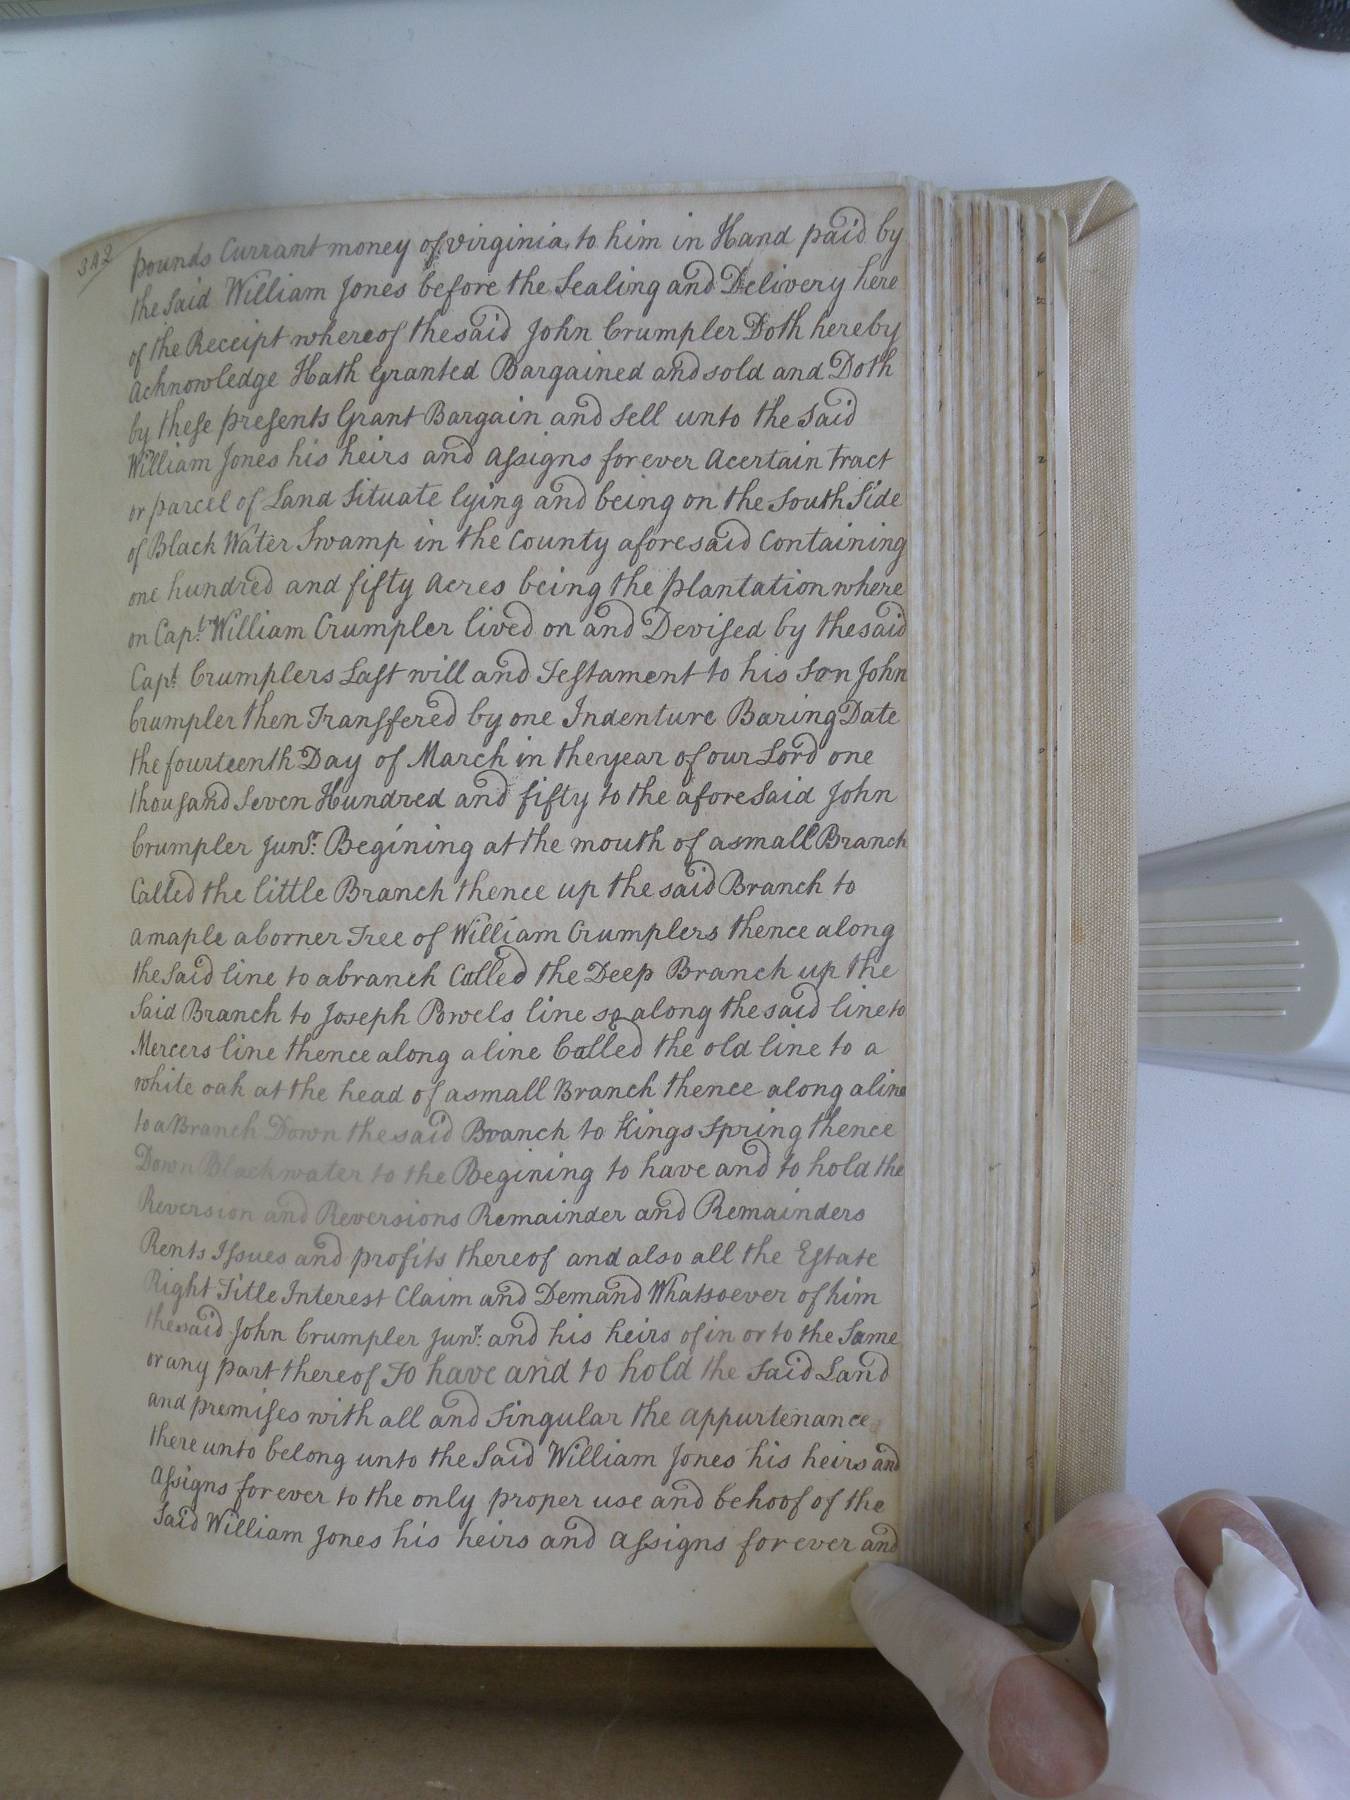 342
pounds Currant money of virginia to him in Hand paid by
the Said William Jones before the Sealing and Delivery here
of the Receipt whereof the said John Crumpler Doth hereby
acknowledge Hath Granted Bargained and sold and Doth
by these presents Grant Bargain and sell unto the Said
William Jones his heirs and assigns forever acertain tract
or parcel of Land Situate lying and being on the South Side
of Black Water Swamp in the County aforesaid Containing
one hundred and fifty acres being the plantation where
on Capt. William Crumpler lived on and Devised by the said
Capt. Crumplers Last will and Testament to his Son John
Crumpler then Transfered by one Indenture Baring Date
the fourteenth Day of March in the year of our Lord one
thousand Seven Hundred and fifty to the aforesaid John
Crumpler Junr. Begining at the mouth of a small Branch
Called the little Branch thence up the said Branch to
a maple a Corner Tree of William Crumplers thence along
the Said line to a branch Called the Deep Branch up the
Said Branch to Joseph Powels line so along the said line to
Mercers line thence along a line Called the old line to a
white oak at the head of a small Branch thence along a line
to a Branch Down the said Branch to Kings Spring thence
Down Blackwater to the Begining to have and to hold the
Reversion and Reversions Remainder and Remainders
Rents Issues and profits thereof and also all the Estate
Right Title Interest Claim and Demand Whatsoever of him
the said John Crumpler Junr. and his heirs of in or to the Same
or any part thereof To have and to hold the Said Land
and premises with all and Singular the appurtenance
there unto belong unto the Said William Jones his heirs and
Assigns forever to the only proper use and behoof of the
Said William Jones his heirs and assigns forever and